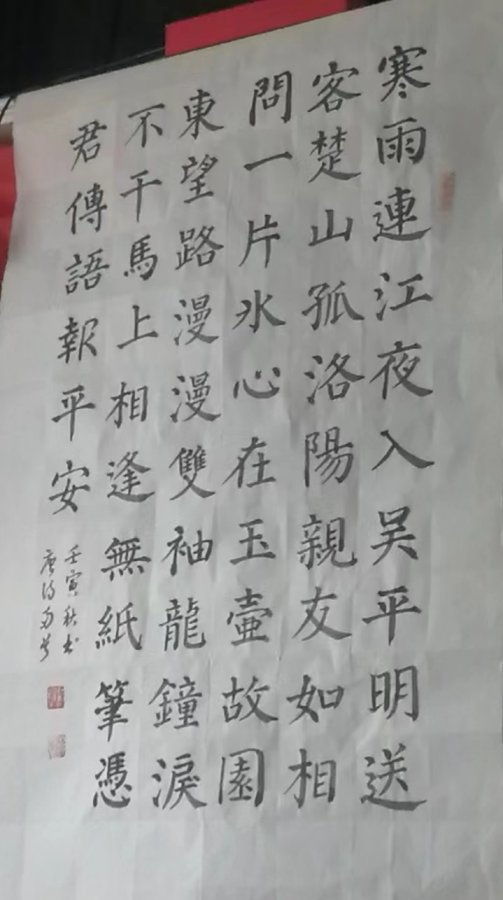 寒雨連江夜入吴平明送
客楚山孤洛陽親友如相
問一片氷心在玉壺故園
東望路漫漫雙袖龍鐘淚
不干馬上相逢無紙筆憑
君傳語報平安
壬寅秋书
唐诗两首